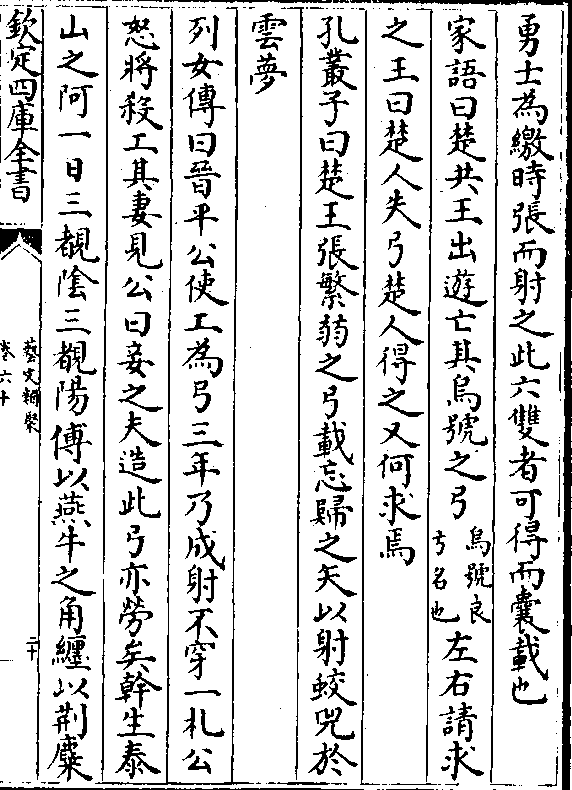 勇士為繳時張而射之此六雙者可得而囊載也
家語曰楚共王出遊亡其烏號之弓烏號良弓名也左右請求
之王曰楚人失弓楚人得之又何求焉
孔叢子曰楚王張繁弱之弓載忘歸之矢以射蛟兕於
雲夢
列女傳曰晉平公使工為弓三年乃成射不穿一札公
怒將殺工其妻見公曰妾之夫造此弓亦勞矣幹生泰
山之阿一日三覩陰三覩陽傅以燕牛之角纏以荆麋
欽定四庫全書
藝文類聚
卷六十
二十